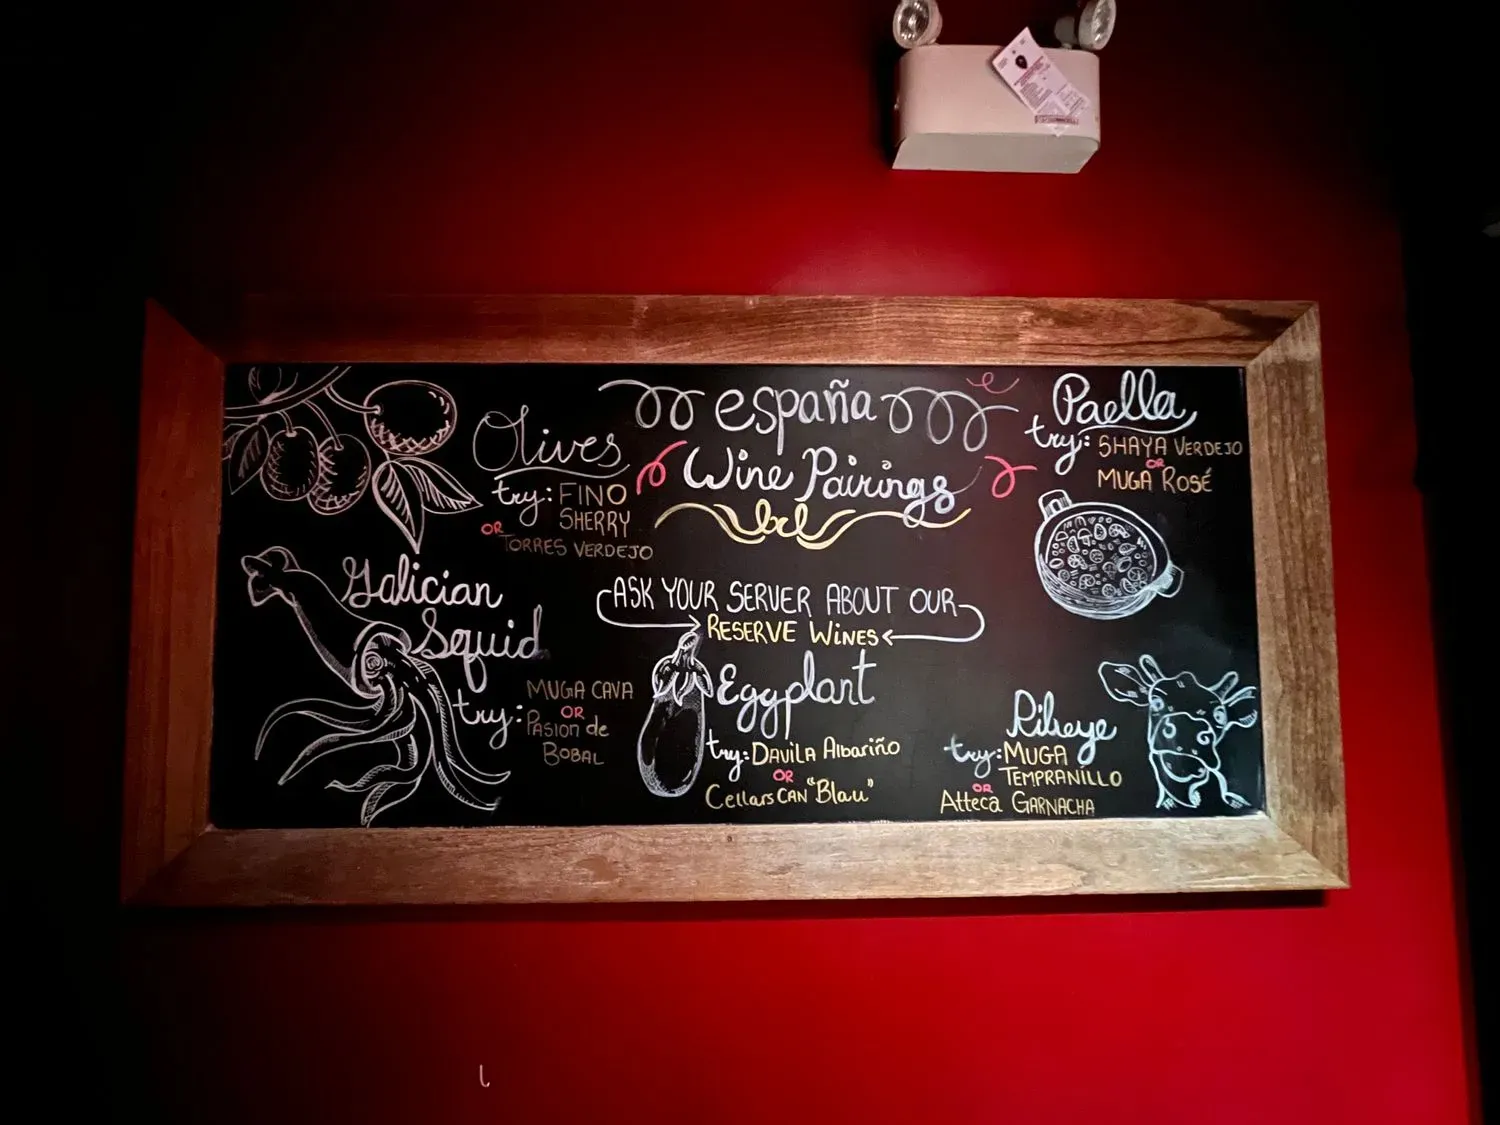 españa
Wine Pairings
Olives
try: FINO
SHERRY
OR
TORRES VERDEJO
Paella
try: SHAYA VERDEJO
OR
MUGA ROSÉ
ASK YOUR SERVER ABOUT OUR
RESERVE WINES
Galician
Squid
try: MUGA CAVA
OR
Pasion de
BOBAL
Eggplant
try: DAVILA Albariño
OR
Cellars CAN "Blau"
Ribeye
try: MUGA
TEMPRANILLO
OR
Atteca GARNACHA